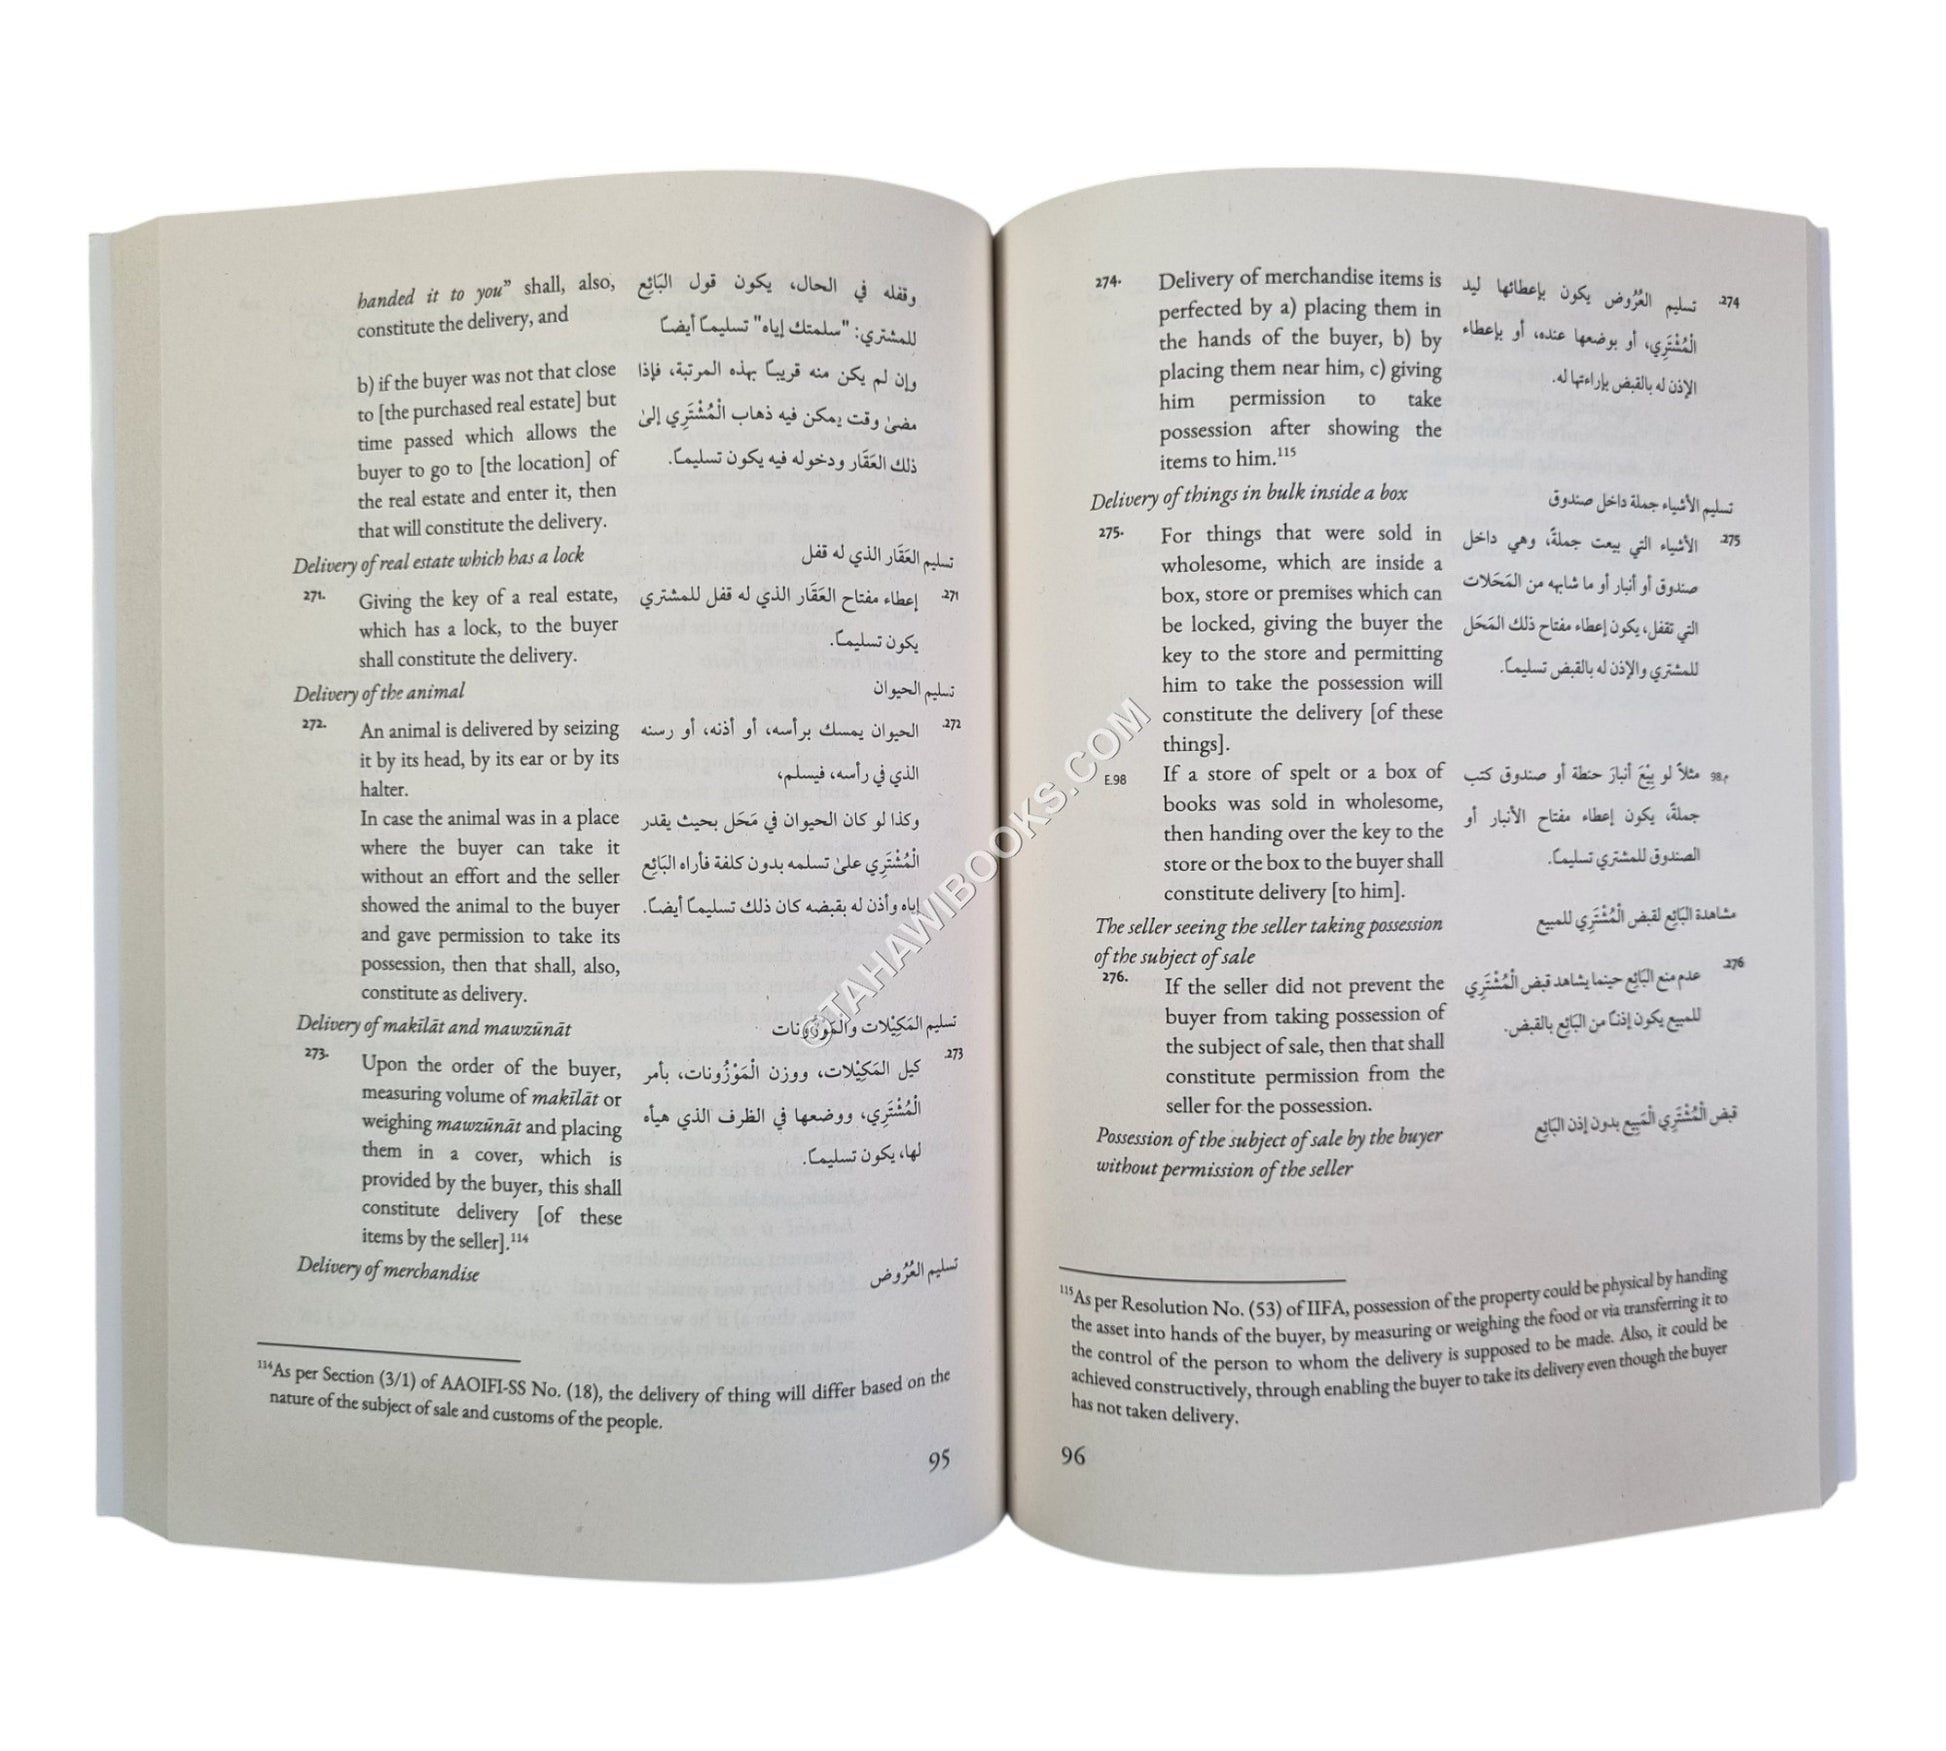 handed it to you" shall, also,
constitute the delivery, and
وقفله في الحال، يكون قول البَائِع
للمشتري: "سلمتك إياه" تسليمـًا أيضـًا
b) if the buyer was not that close
to [the purchased real estate] but
time passed which allows the
buyer to go to [the location] of
the real estate and enter it, then
that will constitute the delivery.
وإن لم يكن منه قريبـًا بهذه المرتبة، فإذا
مضىٰ وقت يمكن فيه ذهاب الْمُشْتَرِي إلىٰ
ذلك العَقَار ودخوله فيه يكون تسليمـًا.
Delivery of real estate which has a lock
تسليم العَقَار الذي له قفل
271. Giving the key of a real estate,
which has a lock, to the buyer
shall constitute the delivery.
271. إعطاء مفتاح العَقَار الذي له قفل للمشتري
يكون تسليمـًا.
Delivery of the animal
تسليم الحيوان
272. An animal is delivered by seizing
it by its head, by its ear or by its
halter.
In case the animal was in a place
where the buyer can take it
without an effort and the seller
showed the animal to the buyer
and gave permission to take its
possession, then that shall, also,
constitute as delivery.
272. الحيوان يمسك برأسه، أو أذنه، أو رسنه
الذي في رأسه، فيسلم،
وكذا لو كان الحيوان في مَحَل بحيث يقدر
الْمُشْتَرِي علىٰ تسلمه بدون كلفة فأراه البَائِع
إياه وأذن له بقبضه كان ذلك تسليمـًا أيضـًا.
Delivery of makīlāt and mawzūnāt
تسليم المَكِيْلات والْمَوْزُونات
273. Upon the order of the buyer,
measuring volume of makīlāt or
weighing mawzūnāt and placing
them in a cover, which is
provided by the buyer, this shall
constitute delivery [of these
items by the seller].114
273. كيل المَكِيْلات، ووزن الْمَوْزُونات، بأمر
الْمُشْتَرِي، ووضعها في الظرف الذي هيأه
لها، يكون تسليمـًا.
Delivery of merchandise
تسليم العُرُوض
114As per Section (3/1) of AAOIFI-SS No. (18), the delivery of thing will differ based on the
nature of the subject of sale and customs of the people.
95
274. Delivery of merchandise items is
perfected by a) placing them in
the hands of the buyer, b) by
placing them near him, c) giving
him permission to take
possession after showing the
items to him.115
274. تسليم العُرُوض يكون بإعطائها ليد
الْمُشْتَرِي، أو بوضعها عنده، أو بإعطاء
الإذن له بالقبض بإراءتها له.
Delivery of things in bulk inside a box
تسليم الأشياء جملة داخل صندوق
275. For things that were sold in
wholesome, which are inside a
box, store or premises which can
be locked, giving the buyer the
key to the store and permitting
him to take the possession will
constitute the delivery [of these
things].
275. الأشياء التي بيعت جملةً، وهي داخل
صندوق أو أنبار أو ما شابهه من المَحَلات
التي تقفل، يكون إعطاء مفتاح ذلك المَحَل
للمشتري والإذن له بالقبض تسليمـًا.
E.98 If a store of spelt or a box of
books was sold in wholesome,
then handing over the key to the
store or the box to the buyer shall
constitute delivery [to him].
م.98 مثلاً لو بِيْعَ أنبارَ حنطة أو صندوق كتب
جملةً، يكون إعطاء مفتاح الأنبار أو
الصندوق للمشتري تسليمـًا.
The seller seeing the seller taking possession
of the subject of sale
مشاهدة البَائِع لقبض الْمُشْتَرِي للمبيع
276. If the seller did not prevent the
buyer from taking possession of
the subject of sale, then that shall
constitute permission from the
seller for the possession.
276. عدم منع البَائِع حينما يشاهد قبض الْمُشْتَرِي
للمبيع يكون إذنـًا من البَائِع بالقبض.
Possession of the subject of sale by the buyer
without permission of the seller
قبض الْمُشْتَرِي الْمَبِيع بدون إذن البَائِع
115As per Resolution No. (53) of IIFA, possession of the property could be physical by handing
the asset into hands of the buyer, by measuring or weighing the food or via transferring it to
the control of the person to whom the delivery is supposed to be made. Also, it could be
achieved constructively, through enabling the buyer to take its delivery even though the buyer
has not taken delivery.
96
©TAHAWIBOOKS.COM